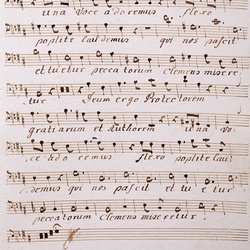 una voce adoremus flexo
poplite laudemus qui nos pascit
et tuetur peccatorum Clemens misere,
tur Deum ergo Protectorem
gratiarum et Authorem una vo,
ce ado remus flexo poplite lau,
demus qui nos pascit et tu e tur
peccatorum Clemens miseretur.